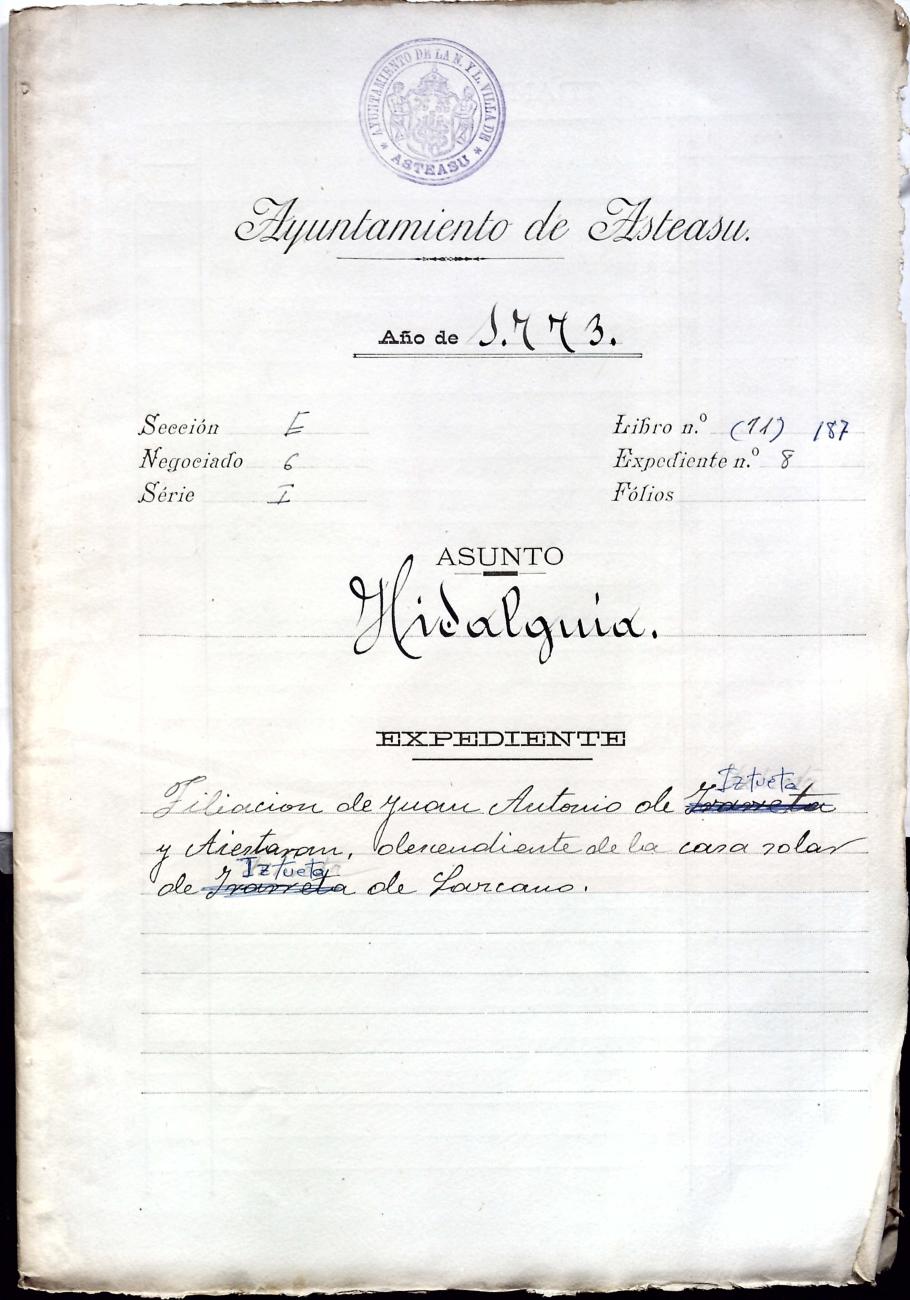 AYUNTAMIENTO DE LA N. Y L. VILLA DE
* ASTEASU *
Ayuntamiento de Asteasu.
Año de 1.773.
Sección E Libro n.º (11) 187
Negociado 6 Expediente n.º 8
Série I Fólios
ASUNTO
Hidalguia.
EXPEDIENTE
Iztueta
Filiacion de Juan Antonio de Irarreta
y Aiestaran, descendiente de la casa solar
Iztueta
de Irarreta de Lazcano.